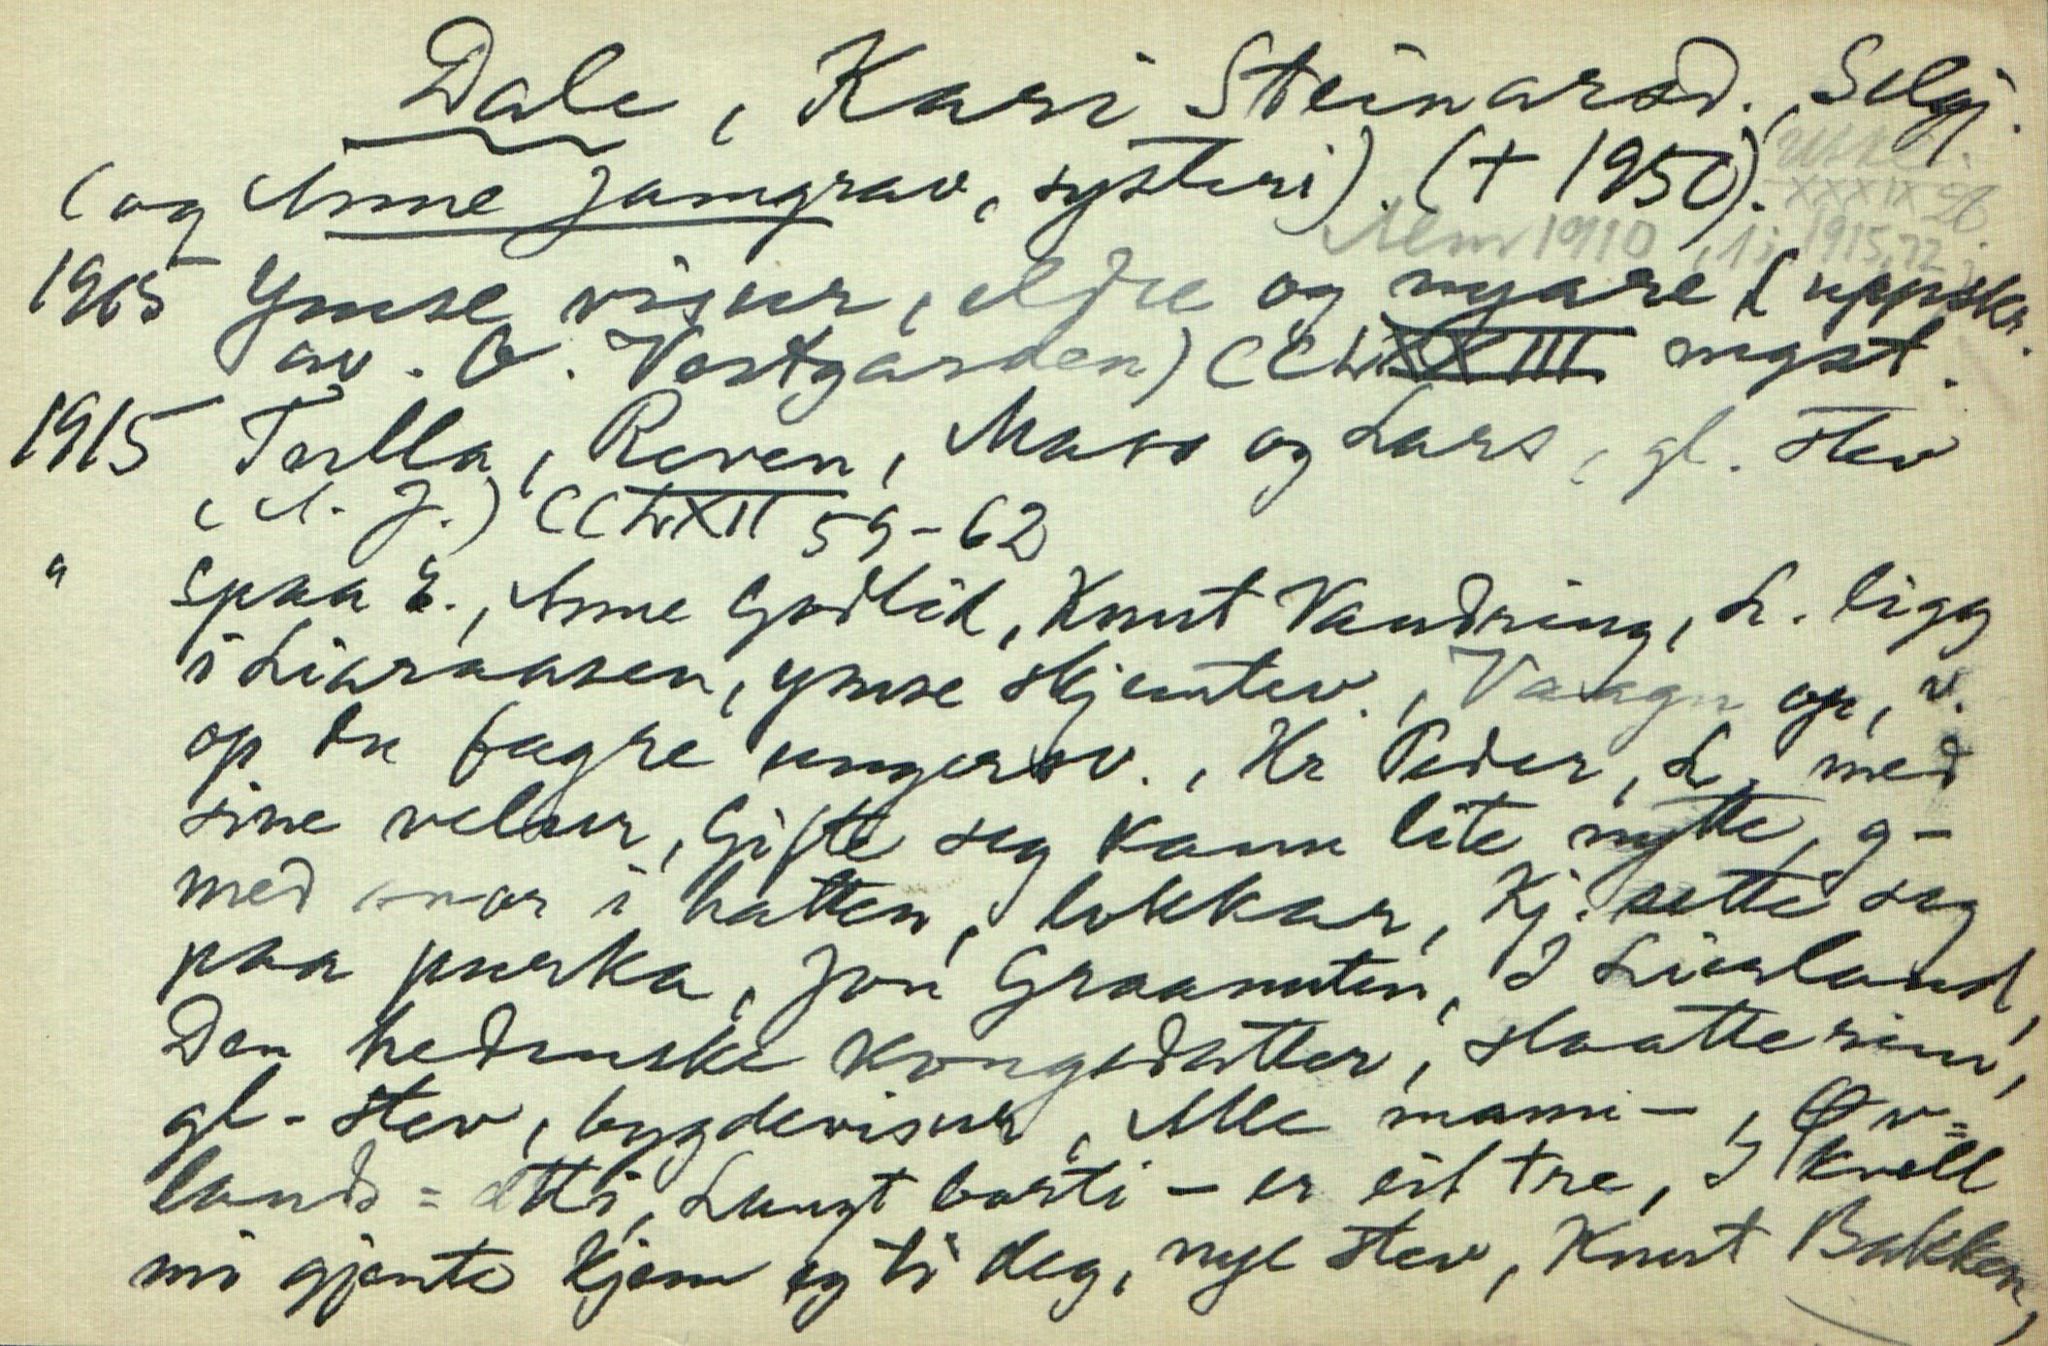 Dale, Kari Steinarsd., Selgj.
(og Anne Jamgrav, systeri). († 1950).
XXXIX 26.
1910, 1915, 72
1915 Ymse visur, eldre og nyare (uppskr.
av. O. Vestgarden) mgst.
1915 Tulla, Reven, Mass og Lars, gl. stev
(A. J.) CCLXII 59-62
" Spaa E., Anne Godlid, Knut Vandring, L. ligg
i Liaraasen, ymse skjemtev., Vaagn op, v.
op du fagre ungersv., Hr Peder, L. med
sine velur, Gifte seg kann lite nytte, g-
med snor i hatten, lokkar, Kj. sette seg
paa purka, Jon Graanuten, I Lierland,
Den hedenske kongedatter, slaatterim,
gl. stev, bygdevisur, Alle mann-, Øv=
lands=ætti, Langt borti - er eit tre, I kvell
mi gjente kjem eg ti deg, nye stev, Knut Bakken,